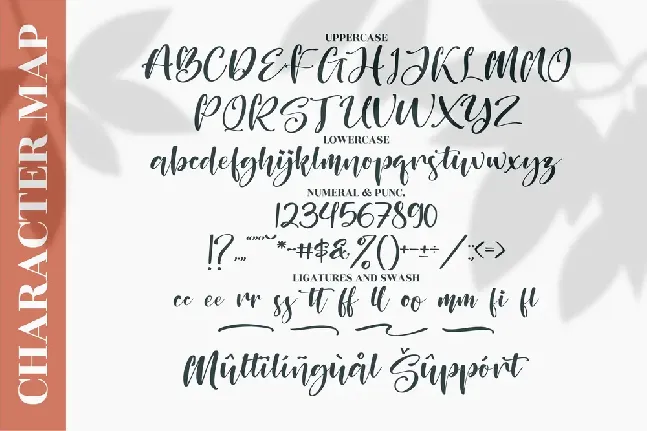 CHARACTER MAP
UPPERCASE
ABCDEFGHIJKLMNO
PQRSTUVWXYZ
LOWERCASE
abcdefghijklmnopqrstuvwxyz
NUMERAL & PUNC.
1234567890
!?,,,,""''"~*-#$&%()+-±÷/:;<=>
LIGATURES AND SWASH
cc ee rr ss tt ff ll oo mm fi fl
Mûltïlíñgùål Šûppórt